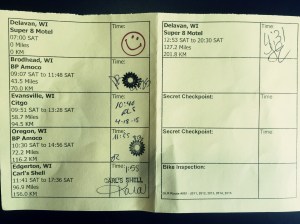 Delavan, WI
Time:
Super 8 Motel
07:00 SAT
0 Miles
0 KM
Brodhead, WI
Time:
BP Amoco
09:07 SAT to 11:48 SAT
43.5 Miles
70.0 KM
Evansville, WI
Time:
Citgo
09:51 SAT to 13:28 SAT
58.7 Miles
94.5 KM
10:40
4-18-15
Oregon, WI
Time:
BP Amoco
11:55
10:30 SAT to 14:56 SAT
72.2 Miles
116.2 KM
Edgerton, WI
Time:
Carl's Shell
1:55
11:41 SAT to 17:36 SAT
CARL'S SHELL
96.9 Miles
156.0 KM
Delavan, WI
Time:
Super 8 Motel
12:53 SAT to 20:30 SAT
127.2 Miles
201.8 KM
4:31
Secret Checkpoint:
Time:
Secret Checkpoint:
Time:
Bike Inspection: